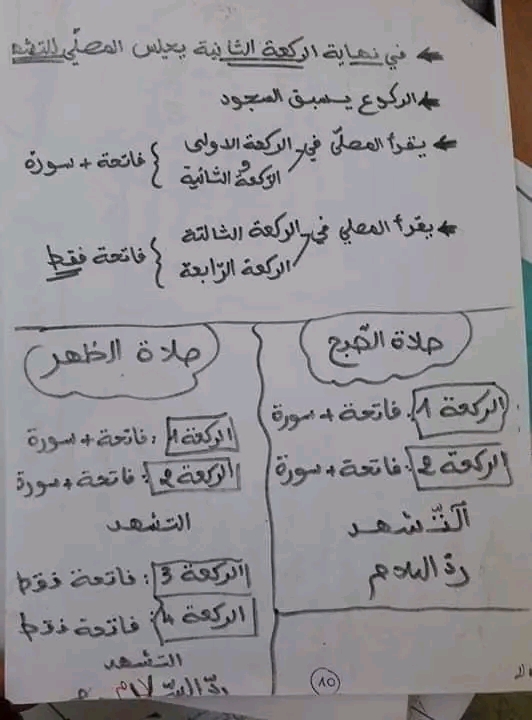 ← في نهاية الركعة الثانية يجلس المصلّي للتشهد
← الركوع يسبق السجود
← يقرأ المصلّي في الركعة الاولى
و
الركعة الثانية
} فاتحة + سورة
← يقرأ المصلي في الركعة الثالثة
الركعة الرّابعة
} فاتحة فقط
صلاة الصّبح
الركعة 1: فاتحة + سورة
الركعة 2: فاتحة + سورة
التّشهد
ردّ السلام
صلاة الظهر
الركعة 1: فاتحة + سورة
الركعة 2: فاتحة + سورة
التشهد
الركعة 3: فاتحة فقط
الركعة 4: فاتحة فقط
التشهد
ردّ السّلام
10